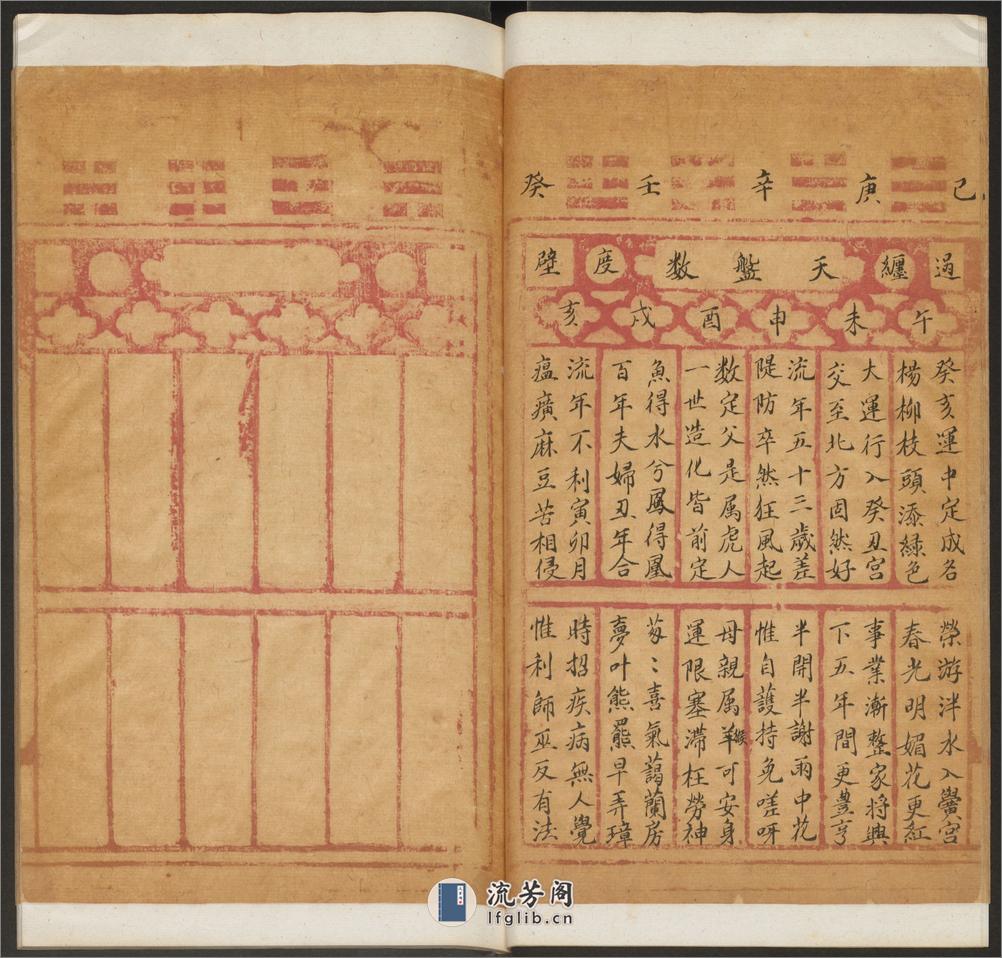 己 庚 辛 壬 癸
過 纏 天盤数 度 壁
午 未 申 酉 戌 亥
癸亥運中定成名
楊柳枝頭添綠色
大運行入癸丑宮
交至北方固然好
流年五十三歲差
隄防卒然狂風起
数定父是属虎人
一世造化皆前定
魚得水兮鳳得凰
百年夫婦丑年合
流年不利寅卯月
瘟癀麻豆苦相侵
榮游泮水入黌宮
春光明媚花更紅
事業漸整家將興
下五年間更豊亨
半開半謝雨中花
惟自護持免嗟呀
母親属羊可安身
猴
運限塞滯枉勞神
葱〻喜氣藹蘭房
夢叶熊羆早弄璋
時招疾病無人覺
惟利師巫反有法
流芳阁
lfglib.cn